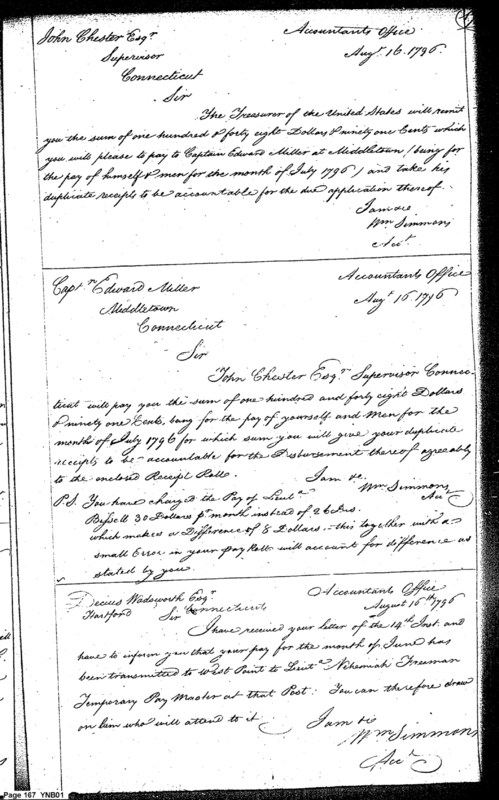 John Chester Esqr Accountants Office
Supervisor Augt. 16. 1796.
Connecticut
Sir
The Treasurer of the United States will remit
you the sum of one hundred & forty eight Dollars & ninety one Cents which
you will please to pay to Captain Edward Miller at Middletown (being for
the pay of himself & men for the month of July 1796) and take his
duplicate receipts to be accountable for the due application thereof.
I am &c
Wm Simmons
Acct
Captn Edward Miller Accountants Office
Middletown Augt 16 1796
Connecticut
Sir
John Chester Esqr Supervisor Connec-
ticut will pay you the sum of one hundred and forty eight Dollars
& ninety one Cents, being for the pay of yourself and Men for the
month of July 1796 for which sum you will give your duplicate
receipts to be accountable for the Disbursement thereof agreeably
to the enclosed Receipt Roll. I am &c
Wm Simmons
Act
PS. You have charged the Pay of Lieut
Bissell 30 Dollars p month instead of 26 Drs.
which makes a Difference of 8 Dollars.—this together with a
small Error in your Pay Roll will account for difference as
stated by you.
Decius Wadsworth Esqr Accountants Office
Hartford Connecticut August 16th 1796
Sir
I have received your letter of the 14th Inst. and
have to inform you that your pay for the month of June has
been transmitted to West Point to Lieut Nehemiah Freeman
Temporary Pay Master at that Post. You can therefore draw
on him who will attend to it. I am &c
Wm Simmons
Acct
Page 167 YNB01